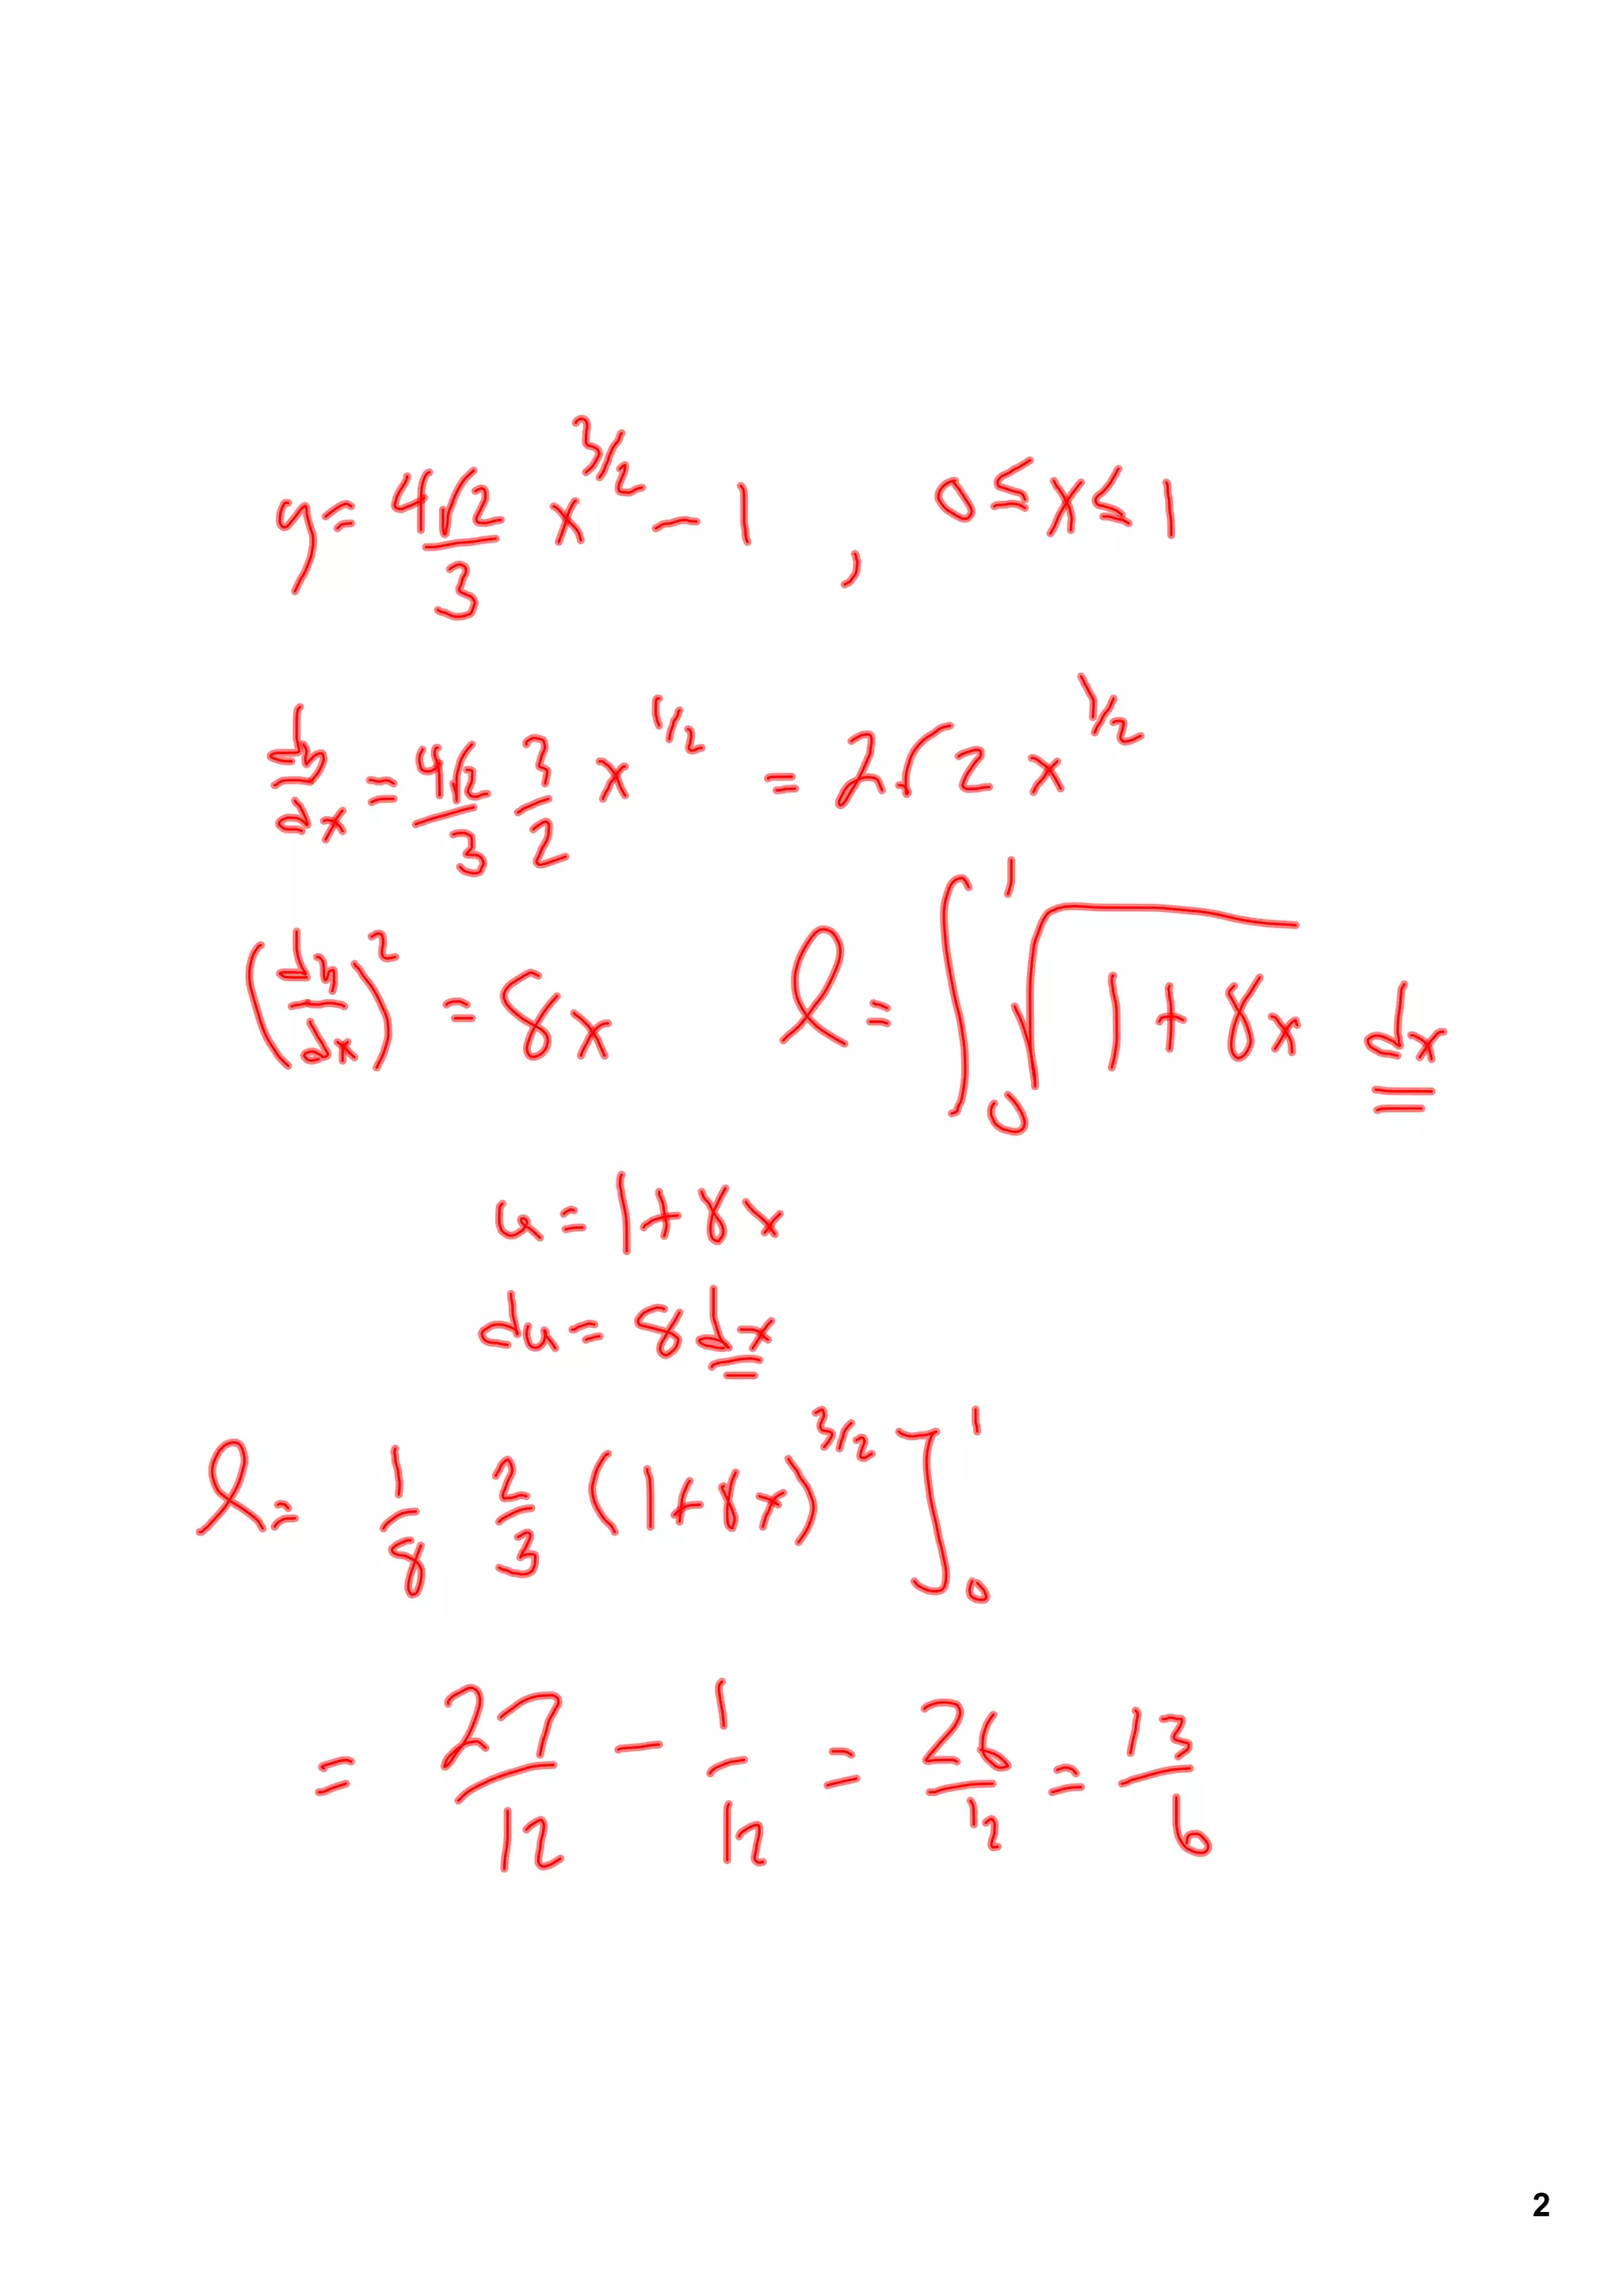 y = 4√2/3 x^{3/2} - 1 , 0 ≤ x ≤ 1
dy/dx = 4√2/3 3/2 x^{1/2} = 2√2 x^{1/2}
(dy/dx)^2 = 8x l = ∫_0^1 √(1+8x) dx
u = 1+8x
du = 8dx
l = 1/8 2/3 (1+8x)^{3/2} ]_0^1
= 27/12 - 1/12 = 26/12 = 13/6
2